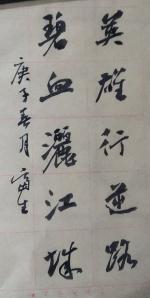 英雄行逆路
碧血灑江城
庚子春月 富生